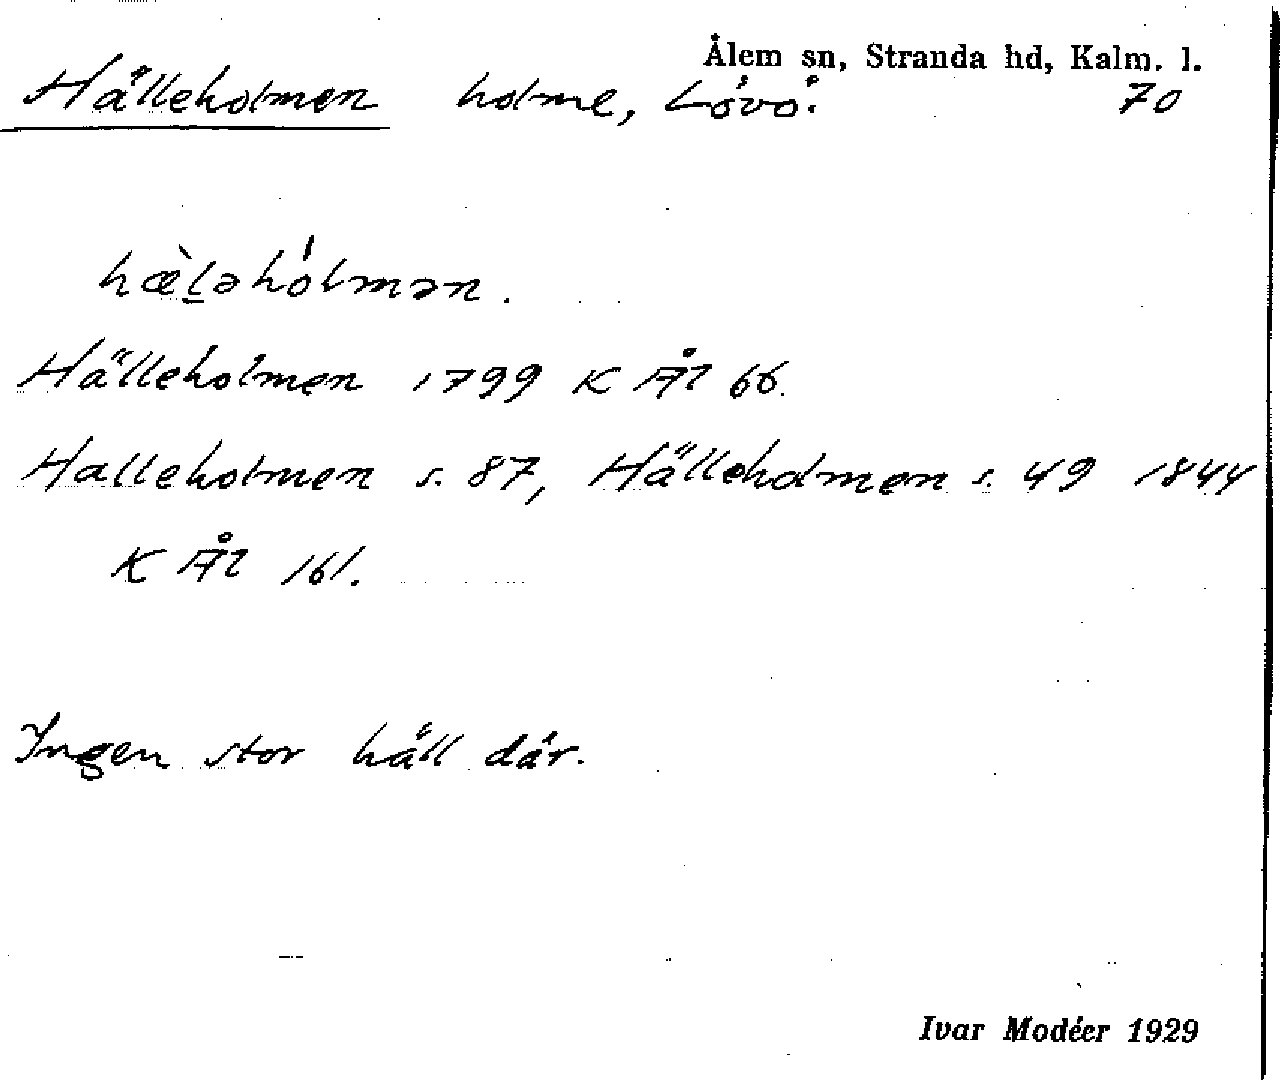 Ålem sn, Stranda hd, Kalm. l.
Hälleholmen holme, Lövö. 70
hæ̀l̠əhólmən.
Hälleholmen 1799 K Ål 66.
Halleholmen s. 87, Hälleholmen s. 49 1844
K Ål 161.
Ingen stor häll där.
Ivar Modéer 1929